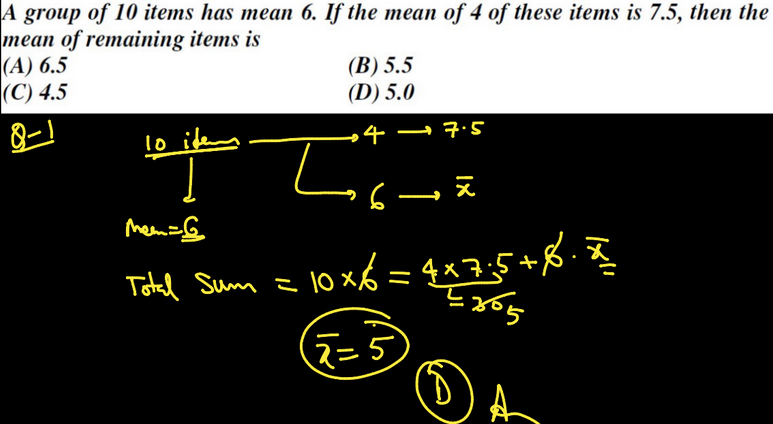 A group of 10 items has mean 6. If the mean of 4 of these items is 7.5, then the
mean of remaining items is
(A) 6.5 (B) 5.5
(C) 4.5 (D) 5.0
Q-1
10 items → 4 → 7.5
→ 6 → x̄
Mean = 6
Total Sum = 10 × 6 = 4 × 7.5 + 6 · x̄
= 30 5
x̄ = 5
D